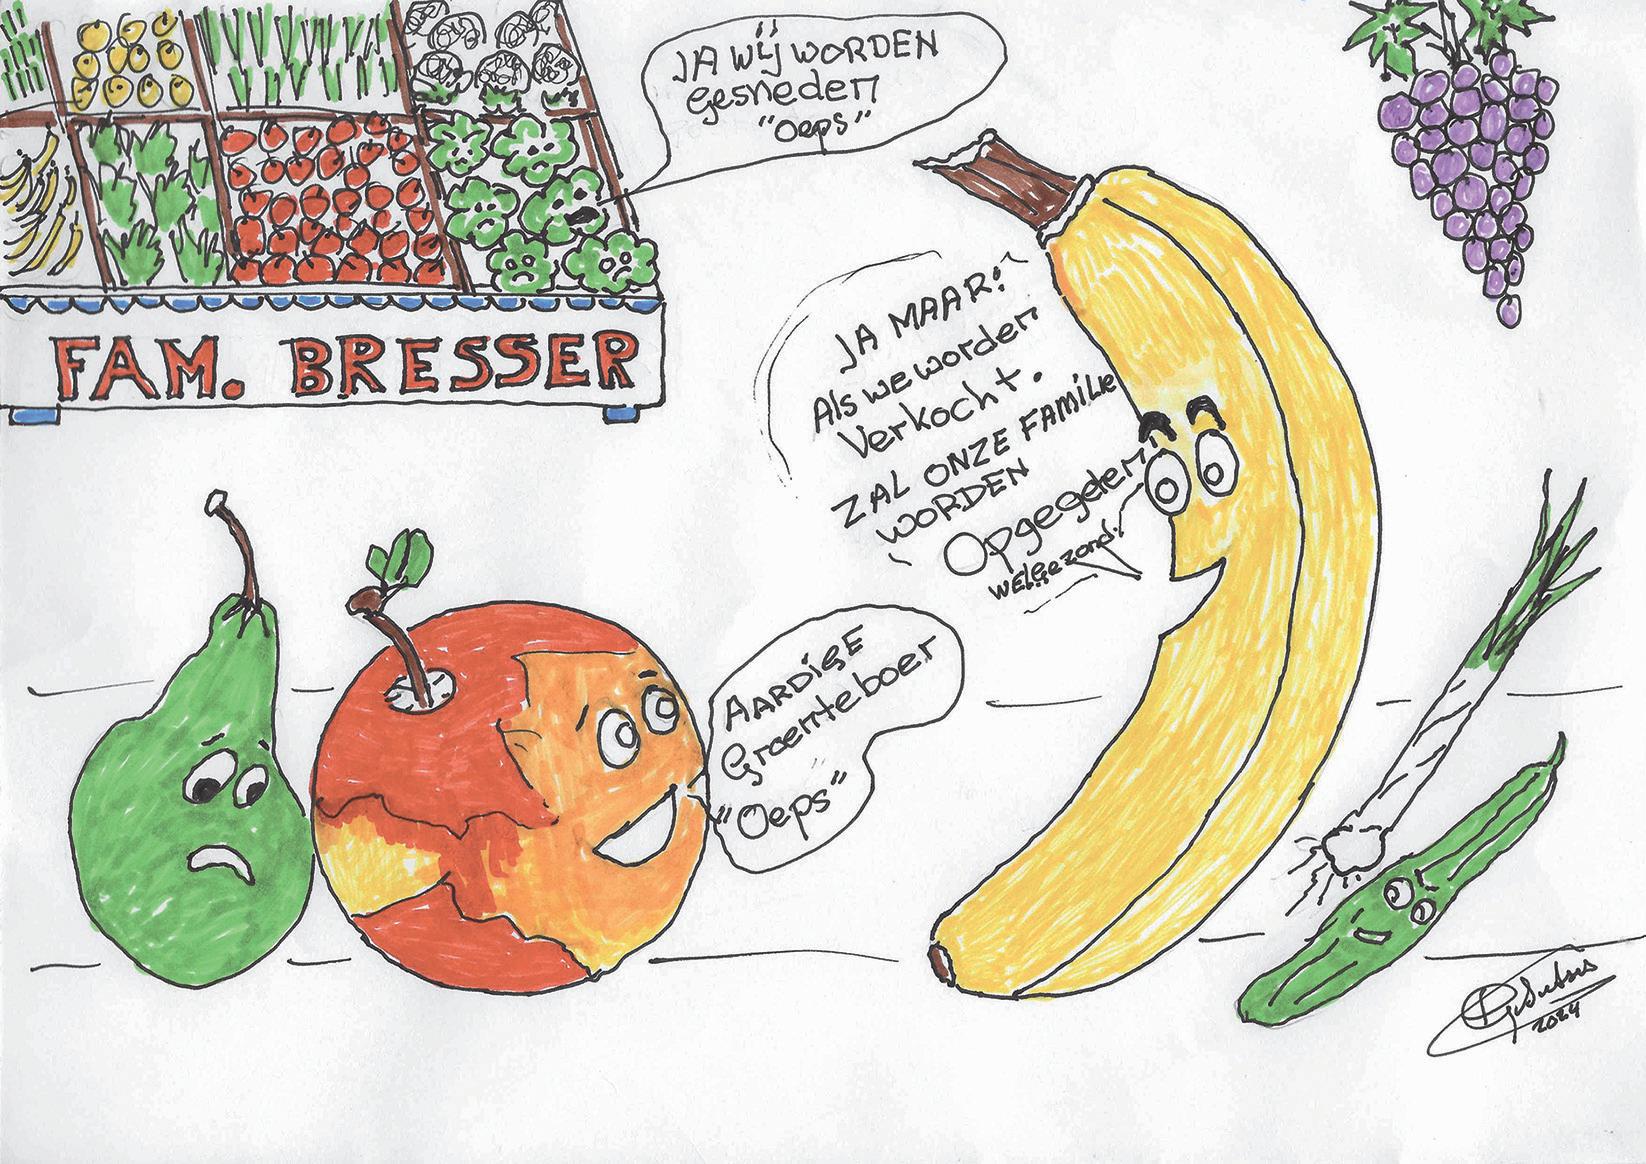 JA WIJ WORDEN
gesneden
"oeps"
FAM. BRESSER
JA MAAR!
Als we worden
Verkocht.
ZAL ONZE FAMILIE
WORDEN
Opgegeten!
AARDIGE
Groenteboer
"Oeps"
2024